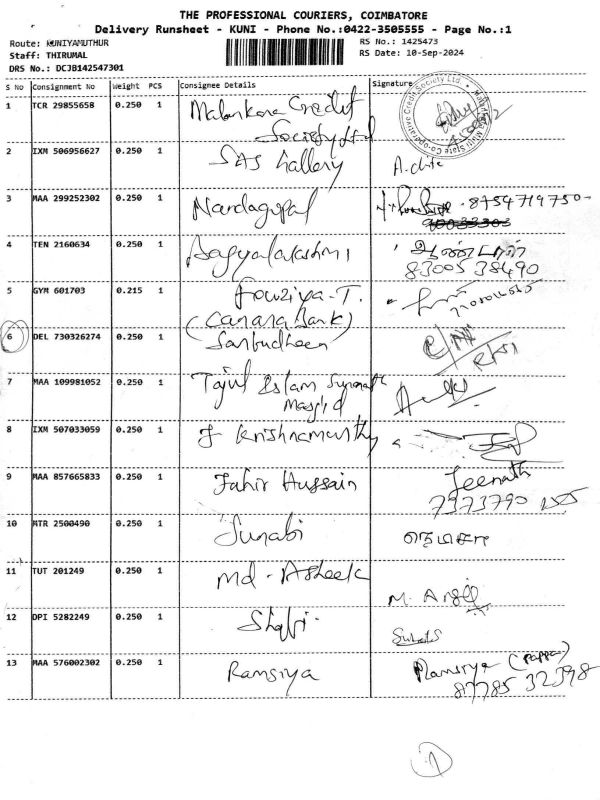 THE PROFESSIONAL COURIERS, COIMBATORE
Delivery Runsheet - KUNI - Phone No.:0422-3505555 - Page No.:1
Route: KUNIYAMUTHUR RS No.: 1425473
Staff: THIRUMAL RS Date: 10-Sep-2024
DRS No.: DCJB142547301
S No Consignment No Weight PCS Consignee Details Signature
1 TCR 29855658 0.250 1 Malankara Credit
Society Ltd
2 IXM 506956627 0.250 1 SAS Gallery
3 MAA 299252302 0.250 1 Nandagopal 8754719750
4 TEN 2160634 0.250 1 Bagyalakshmi
83005 38490
5 GYM 601703 0.215 1 Fouziya.T.
(Canara Bank)
6 DEL 730326274 0.250 1 Sarbudheen
7 MAA 109981052 0.250 1 Tajul Islam Sunnath
Masjid
8 IXM 507033059 0.250 1 J Krishnamurthy
9 MAA 857665833 0.250 1 Jahir Hussain Jeenath
10 MTR 2500490 0.250 1 Sunabi
11 TUT 201249 0.250 1 Md - Asheek
12 DPI 5282249 0.250 1 Shabi.
13 MAA 576002302 0.250 1 Ramsiya Ramsiya (Pappa)
87785 32398
1